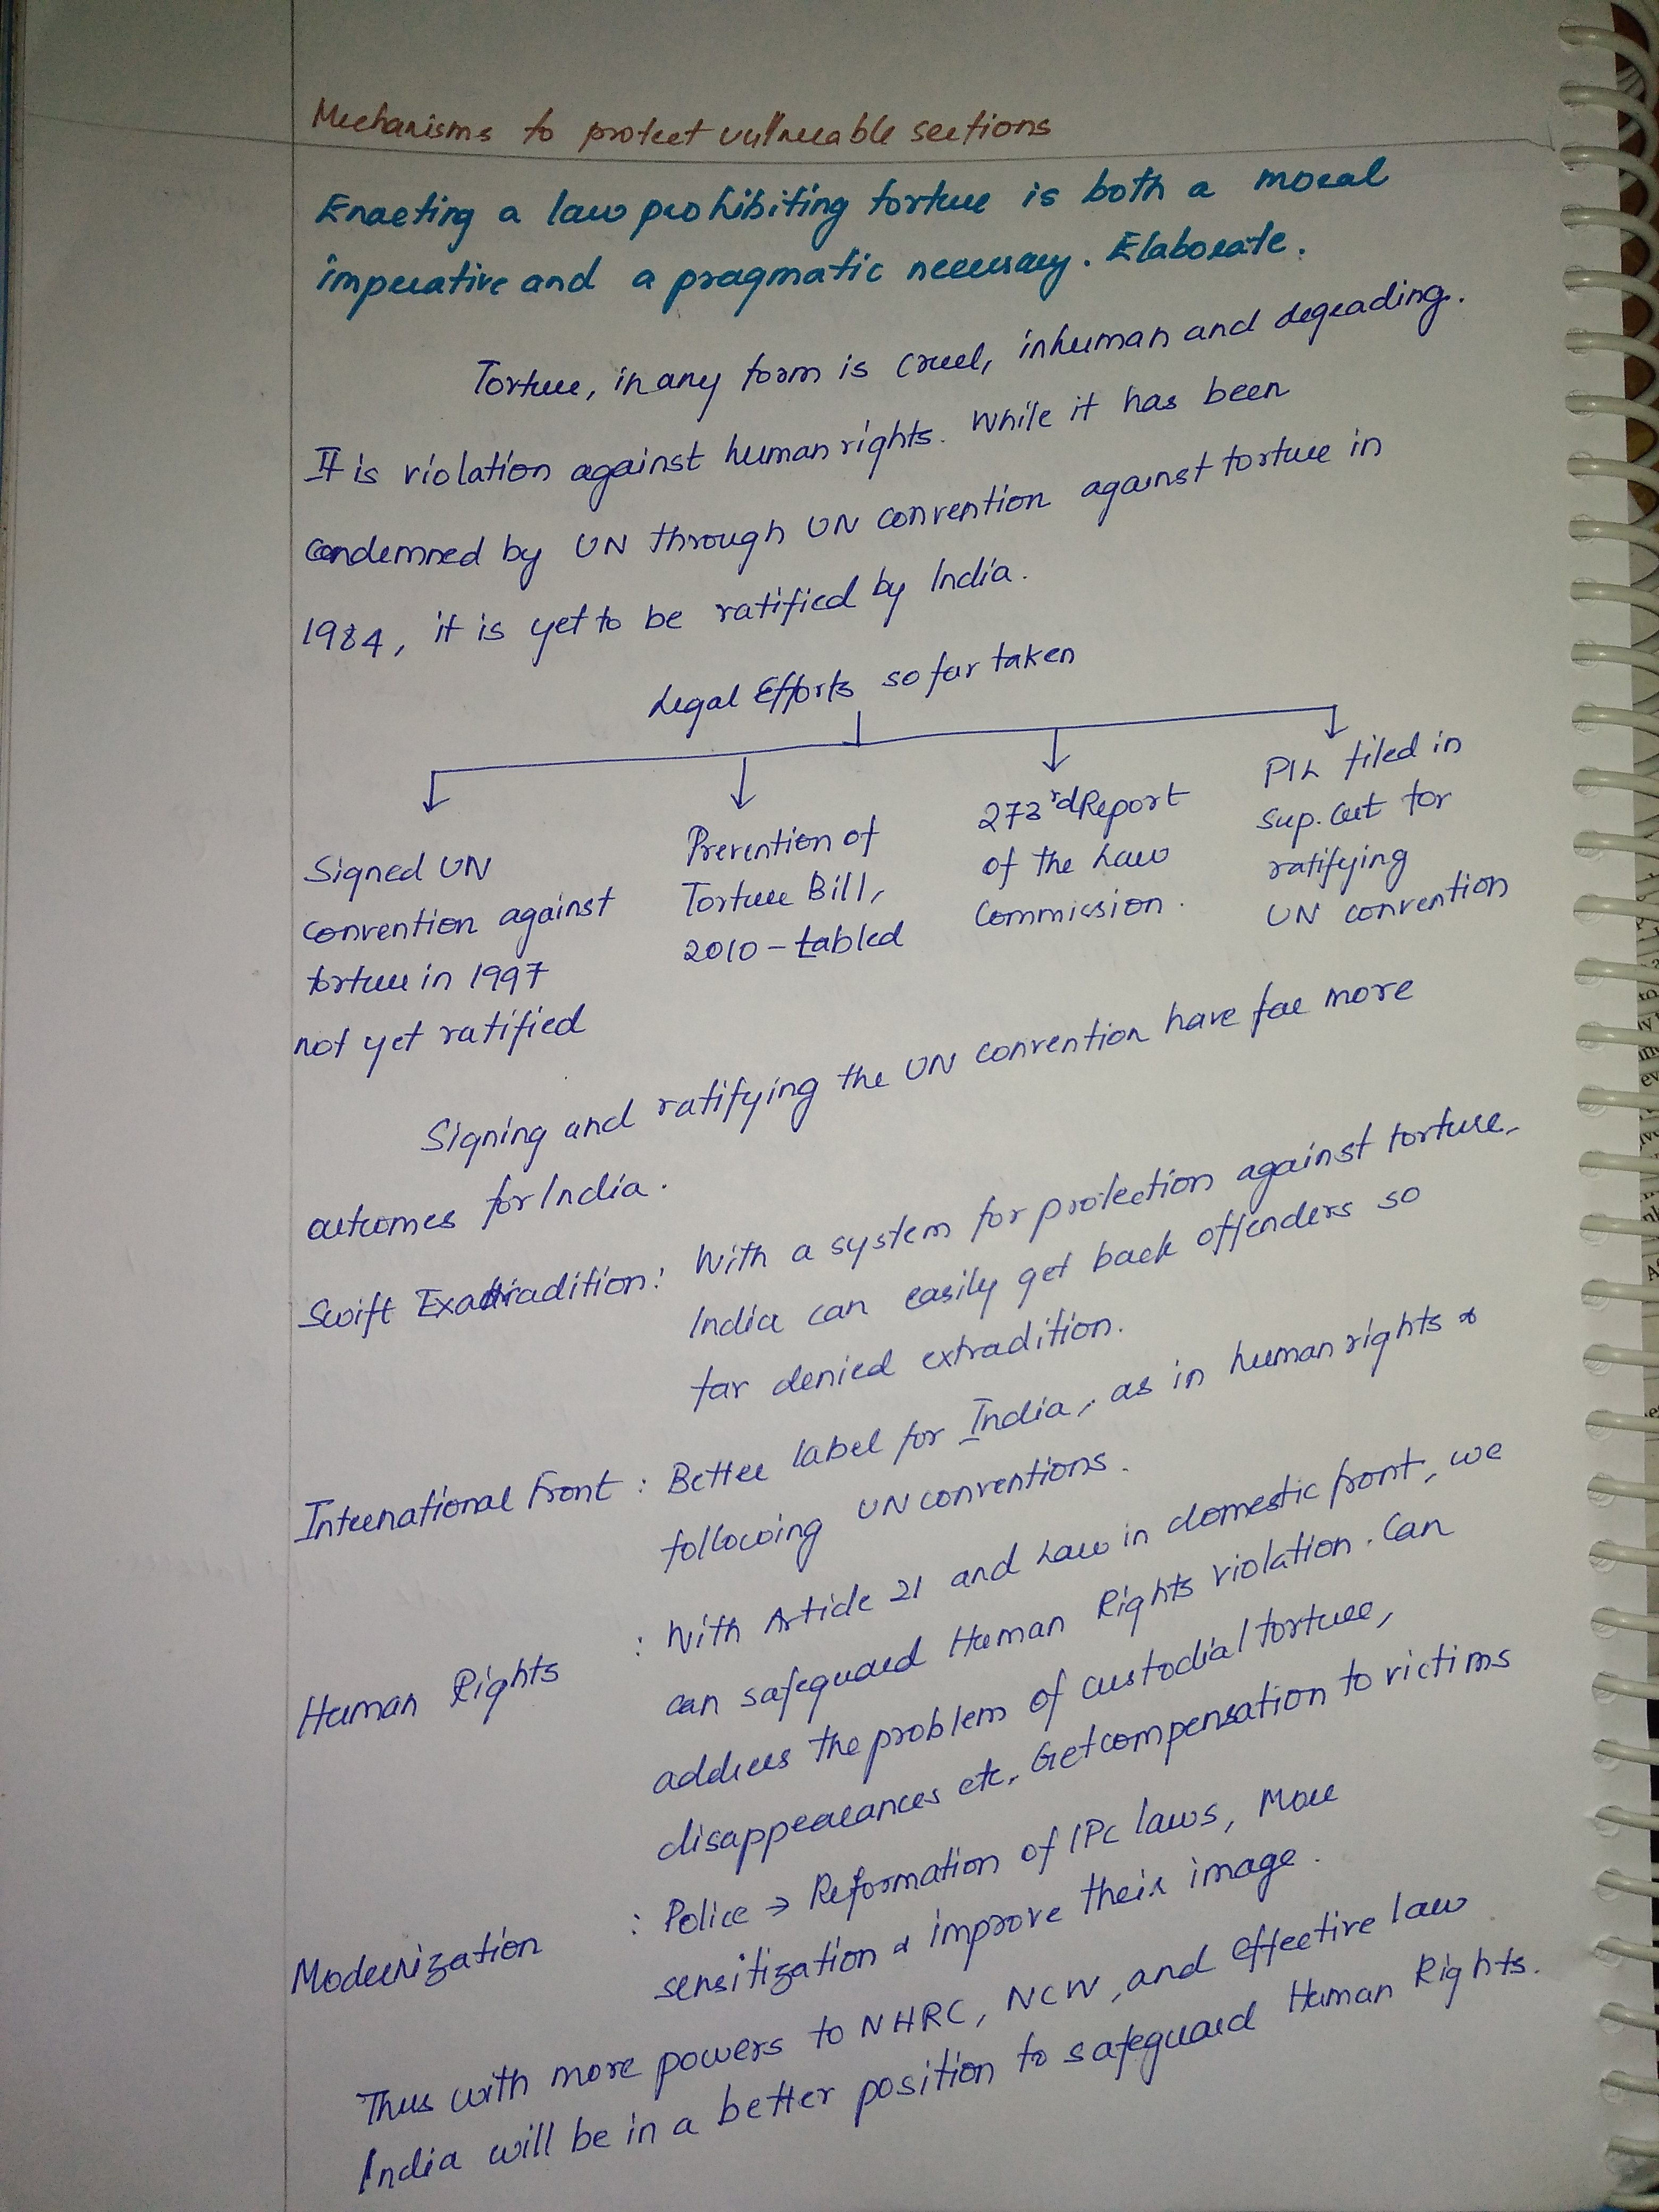 Mechanisms to protect vulnerable sections
Enacting a law prohibiting torture is both a moral
imperative and a pragmatic necessary. Elaborate.
Torture, in any form is cruel, inhuman and degrading.
It is violation against human rights. While it has been
condemned by UN through UN convention against torture in
1984, it is yet to be ratified by India.
Legal Efforts so far taken
Signed UN
convention against
torture in 1997
not yet ratified
Prevention of
Torture Bill,
2010 - tabled
273rd Report
of the Law
Commission.
PIL filed in
Sup. Cut for
ratifying
UN convention
Signing and ratifying the UN convention have far more
outcomes for India.
Swift Extradition: With a system for protection against torture,
India can easily get back offenders so
far denied extradition.
International Front : Better label for India, as in human rights &
following UN conventions.
Human Rights : With Article 21 and Law in domestic front, we
can safeguard Human Rights violation. Can
address the problem of custodial torture,
disappearances etc. Get compensation to victims
Modernization : Police → Reformation of IPC laws, More
sensitization & improve their image.
Thus with more powers to NHRC, NCW, and effective law
India will be in a better position to safeguard Human Rights.